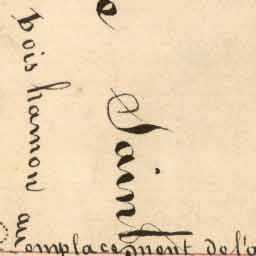 bois hamon au
Saint
emplacement de l'a